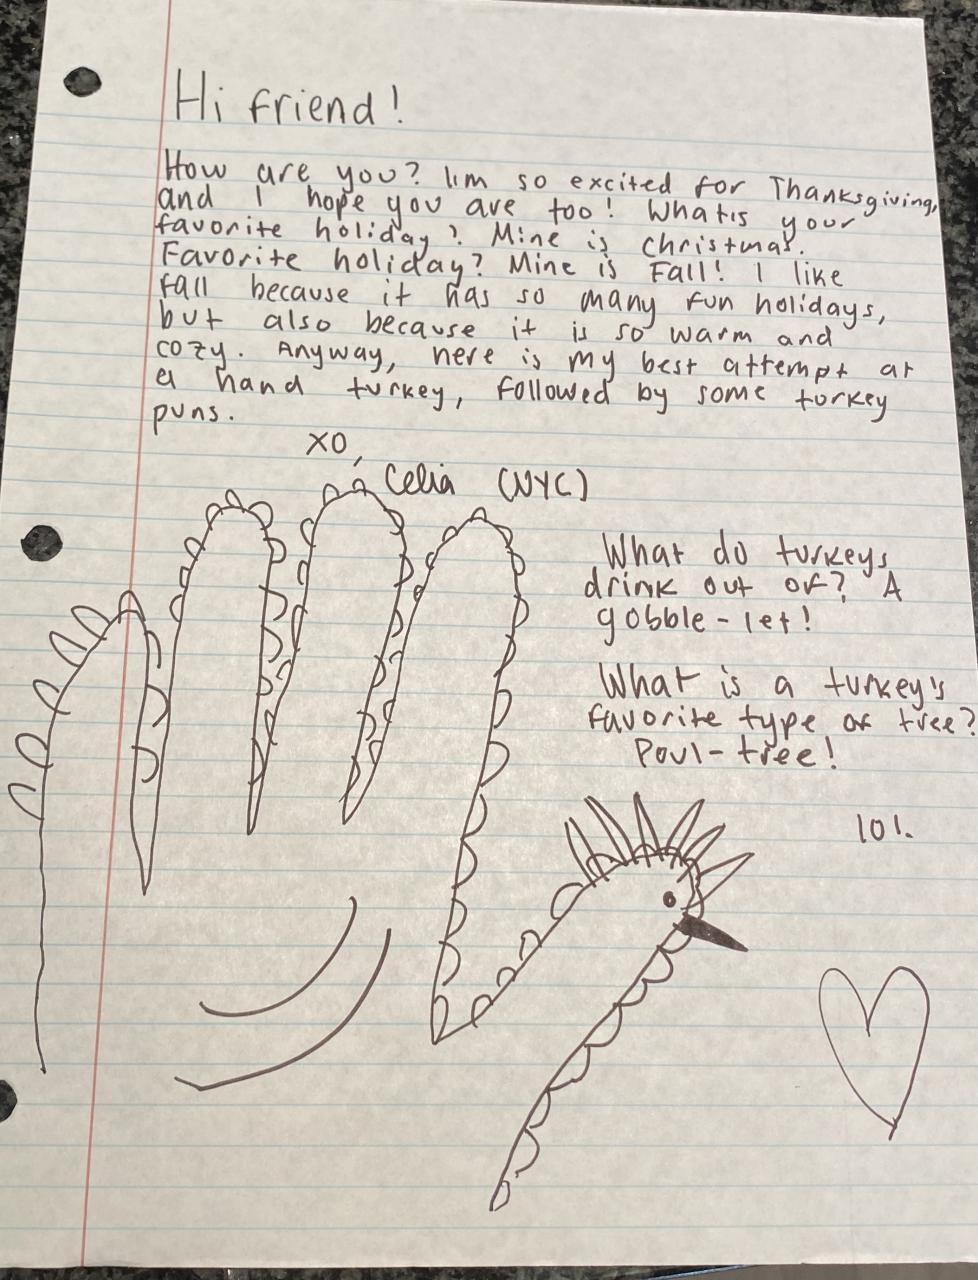 Hi friend!
How are you? I'm so excited for Thanksgiving,
and I hope you are too! What's your
favorite holiday? Mine is christmas.
Favorite holiday? Mine is Fall! I like
fall because it has so many fun holidays,
but also because it is so warm and
cozy. Anyway, here is my best attempt at
a hand turkey, followed by some turkey
puns.
XO,
Celia (NYC)
What do turkeys
drink out of? A
gobble-let!
What is a turkey's
favorite type of tree?
Poul-tree!
lol.